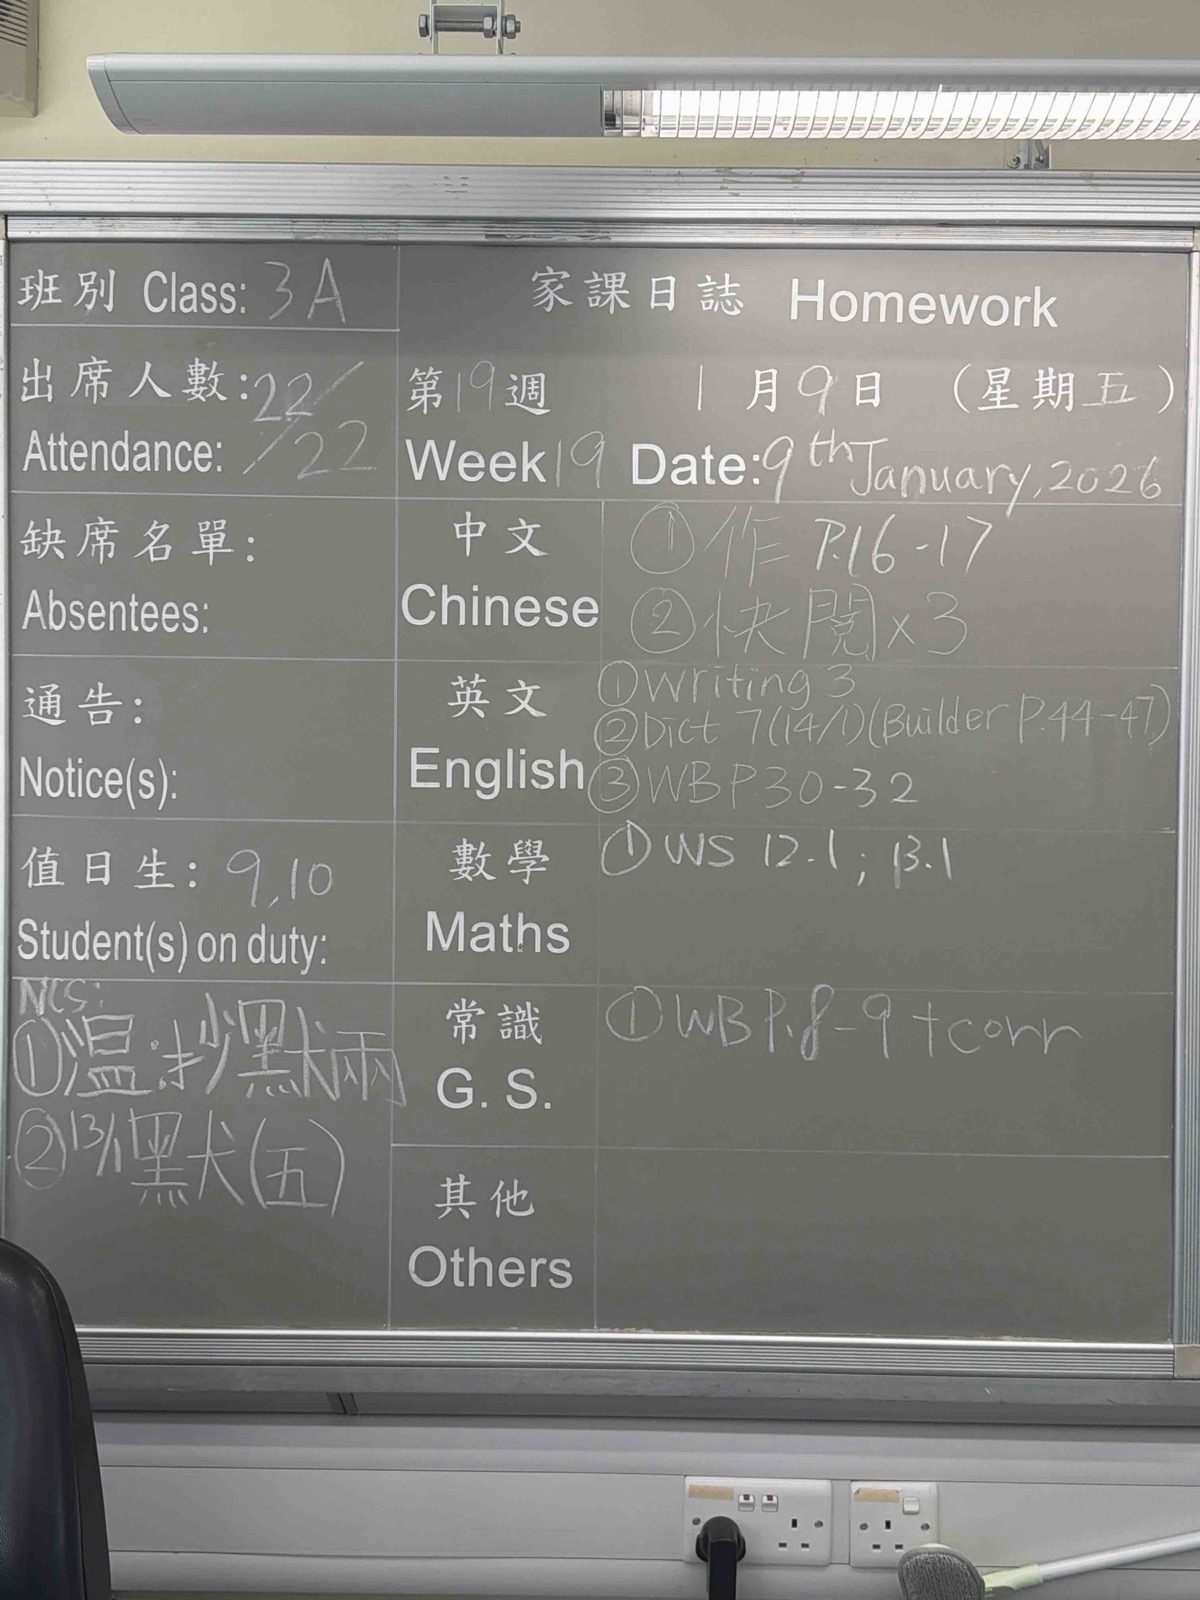 班別 Class: 3A
家課日誌 Homework
出席人數: 22/
Attendance: /22
第19週 1月9日 (星期五)
Week 19 Date: 9th January, 2026
缺席名單:
Absentees:
通告:
Notice(s):
值日生: 9,10
Student(s) on duty:
NCS:
①溫:抄默兩
②13/1默(五)
中文
Chinese
①作 P.16-17
②快閱x3
英文
English
①Writing 3
②Dict 7(14/1)(Builder P.44-47)
③WB P.30-32
數學
Maths
①WS 12.1; 13.1
常識
G. S.
①WB P.8-9+corr
其他
Others